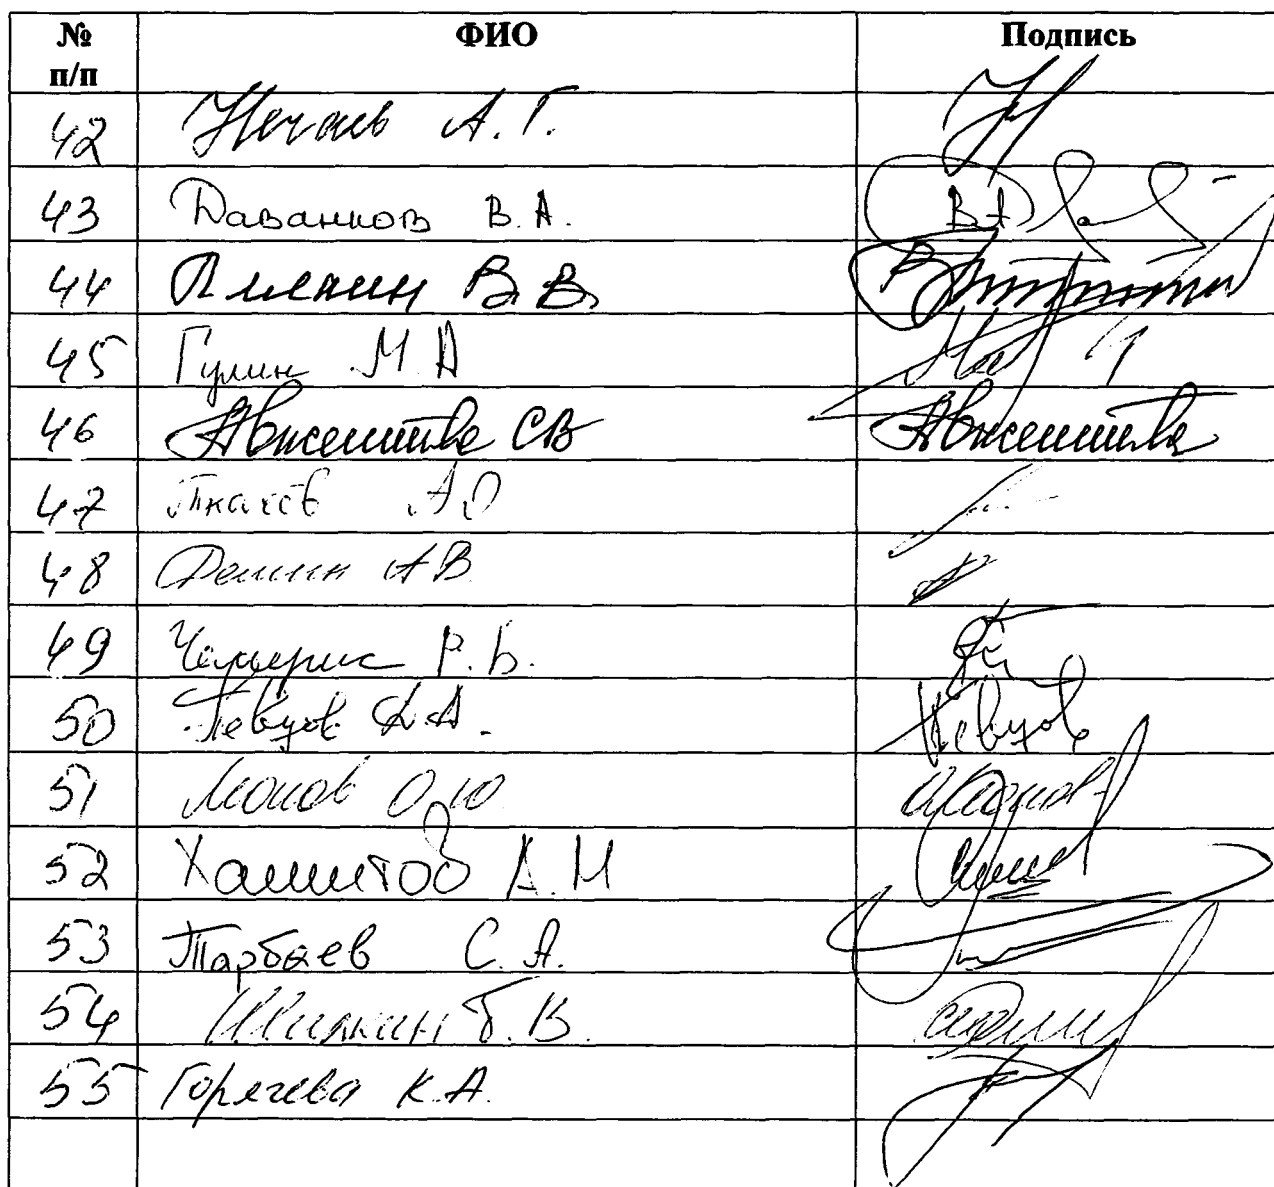 № п/п ФИО Подпись
42 Нечаев А.Г.
43 Даванков В.А.
44 Пилкин В.В.
45 Гулин М А
46 Авксентьева СВ Авксентьева
47 Ткачев АО
48 Демин АВ
49 Чемерис Р.Б.
50 Певцов Д.А. Певцов
51 Монов О.Ю
52 Хамитов А.М
53 Тарбаев С.А.
54 Шилкин Г.В.
55 Горячева К.А.